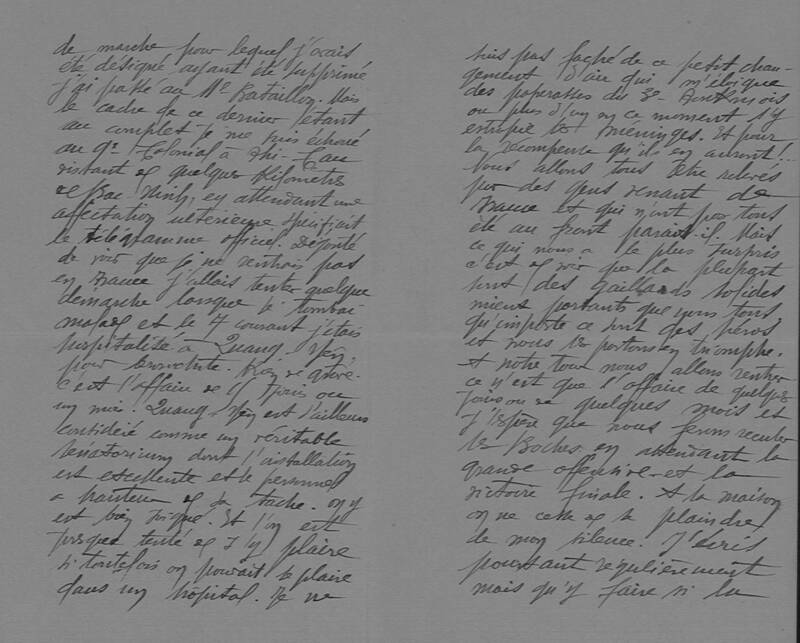 de marche pour lequel j'avais
été désigné ayant été supprimé
j'ai passé au Bataillon. Mais
le cadre de ce dernier étant
au complet je me suis échoué
au Colonial à Thi-Cau
distant de quelques kilomètres
de Bac-Ninh, en attendant une
affectation ultérieure spécifiait
le télégramme officiel. Dégoûté
de voir que je ne rentrais pas
en France j'allais tenter quelque
démarche lorsque je tombai
malade et le 7 courant j'étais
hospitalisé à Quang-Yen,
pour Rien de grave.
C'est l'affaire de 15 jours ou
un mois. Quang-Yen est d'ailleurs
considéré comme un véritable
sanatorium dont l'installation
est excellente et le personnel
à hauteur de sa tâche. On y
est bien soigné. Et l'on est
presque tenté de s'y plaire
si toutefois on pouvait se plaire
dans un hôpital. Je ne
suis pas faché de ce petit chan-
gement d'air qui m'éloigne
des paperasses du 3e
où plus d'un en ce moment s'y
estropie les méninges. Et pour
la récompense qu'ils en auront!..
Nous allons tous être relevés
par des gens venant de
France et qui n'ont pas tous
été au front parait-il. Mais
ce qui nous a le plus surpris
c'est de voir que la plupart
sont des gaillards solides
mieux portants que nous tous,
qu'importe ce sont des héros
et nous les portons en triomphe.
A notre tour nous allons rentrer
ce n'est que l'affaire de quelques
jours ou de quelques mois et
j'espère que nous ferons reculer
les Boches en attendant la
grande offensive et la
victoire finale. A la maison
on ne cesse de se plaindre
de mon silence. J'écris
pourtant régulièrement
mais qu'y faire si la